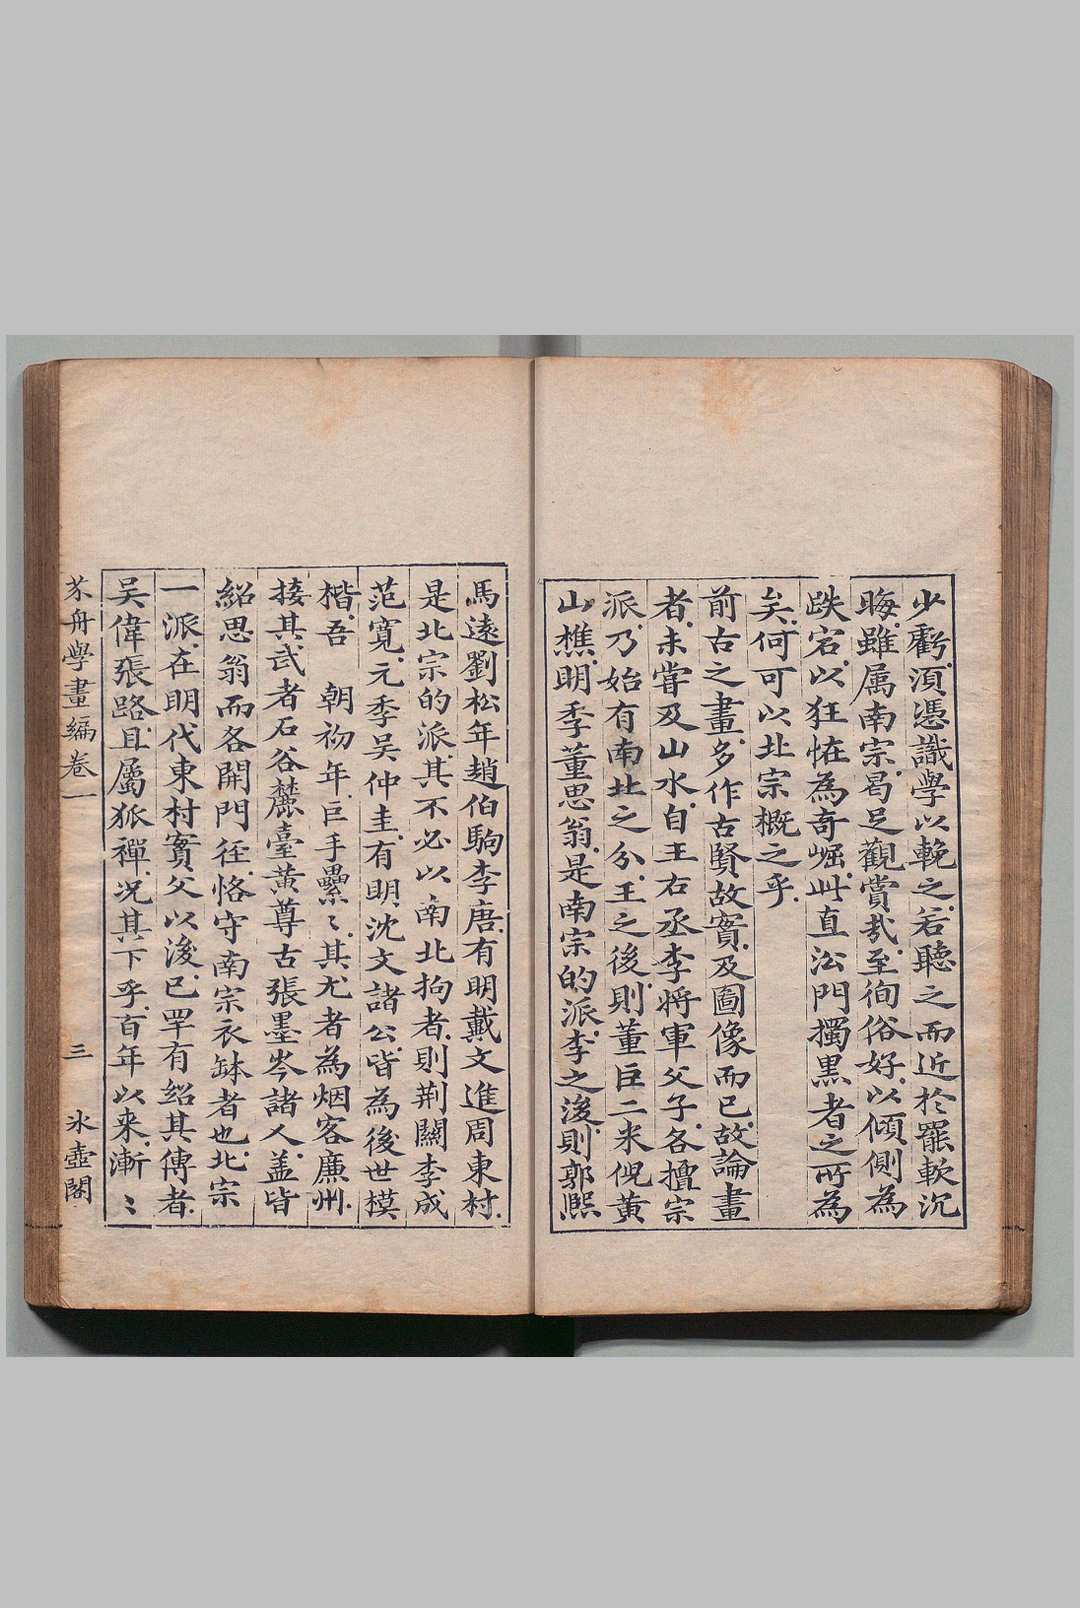 少虧湏憑識學以輓之若聽之而近於罷軟沉
晦雖属南宗曷足觀賞哉至徇俗好以傾側為
跌宕以狂恠為奇崛此直沿門獨黒者之所為
矣何可以北宗概之乎
前古之畫多作古賢故實及圖像而已故論畫
者未嘗及山水自王右丞李将軍父子各擅宗
派乃始有南北之分王之後則董巨二米倪黃
山樵明季董思翁是南宗的派李之後則郭熙
馬遠劉松年趙伯駒李唐有明戴文進周東村
是北宗的派其不必以南北拘者則荆關李成
范寬元季吴仲圭有明沈文諸公皆為後世模
楷吾　朝初年巨手纍〻其尤者為烟客廉州
接其武者石谷麓臺黃尊古張墨岑諸人盖皆
紹思翁而各開門徑恪守南宗衣缽者也北宗
一派在明代東村實父以後已罕有紹其傳者
吴偉張路且屬狐禪況其下乎百年以来漸〻
芥舟學畫編卷一　三　氷壺閣